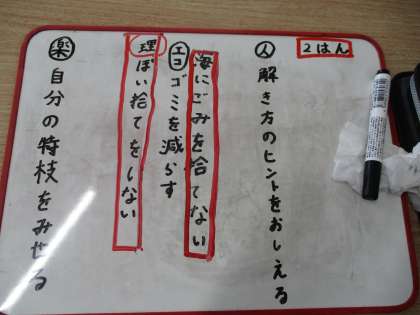 2はん
人 解き方のヒントをおしえる
海にごみを捨てない
エコ ゴミを減らす
理 ぽい捨てをしない
楽 自分の特枝をみせる